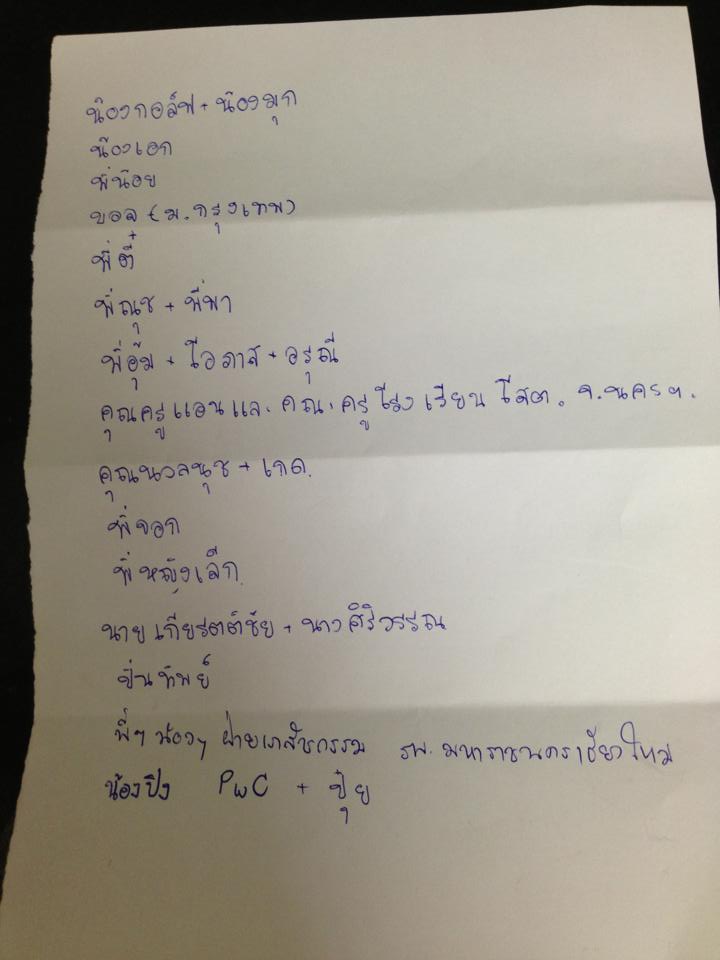 น้องกอล์ฟ + น้องมุก
น้องเอก
พี่น้อย
บอล (ม.กรุงเทพ)
พี่ตี๋
พี่ณุช + พี่พา
พี่อุ้ม + โอภาส + อรุณี
คุณครูแอนและคณะครูโรงเรียนโสต. จ.นครฯ.
คุณนวลนุช + เกด.
พี่จอก
พี่หญิงเล็ก
นายเกียรตต์ชัย + นางศิริวรรณ
ปิ่นทิพย์
พี่ๆ น้องๆ ฝ่ายเภสัชกรรม รพ.มหาราชนครเชียงใหม่
น้องปิง PwC + ปุ้ย